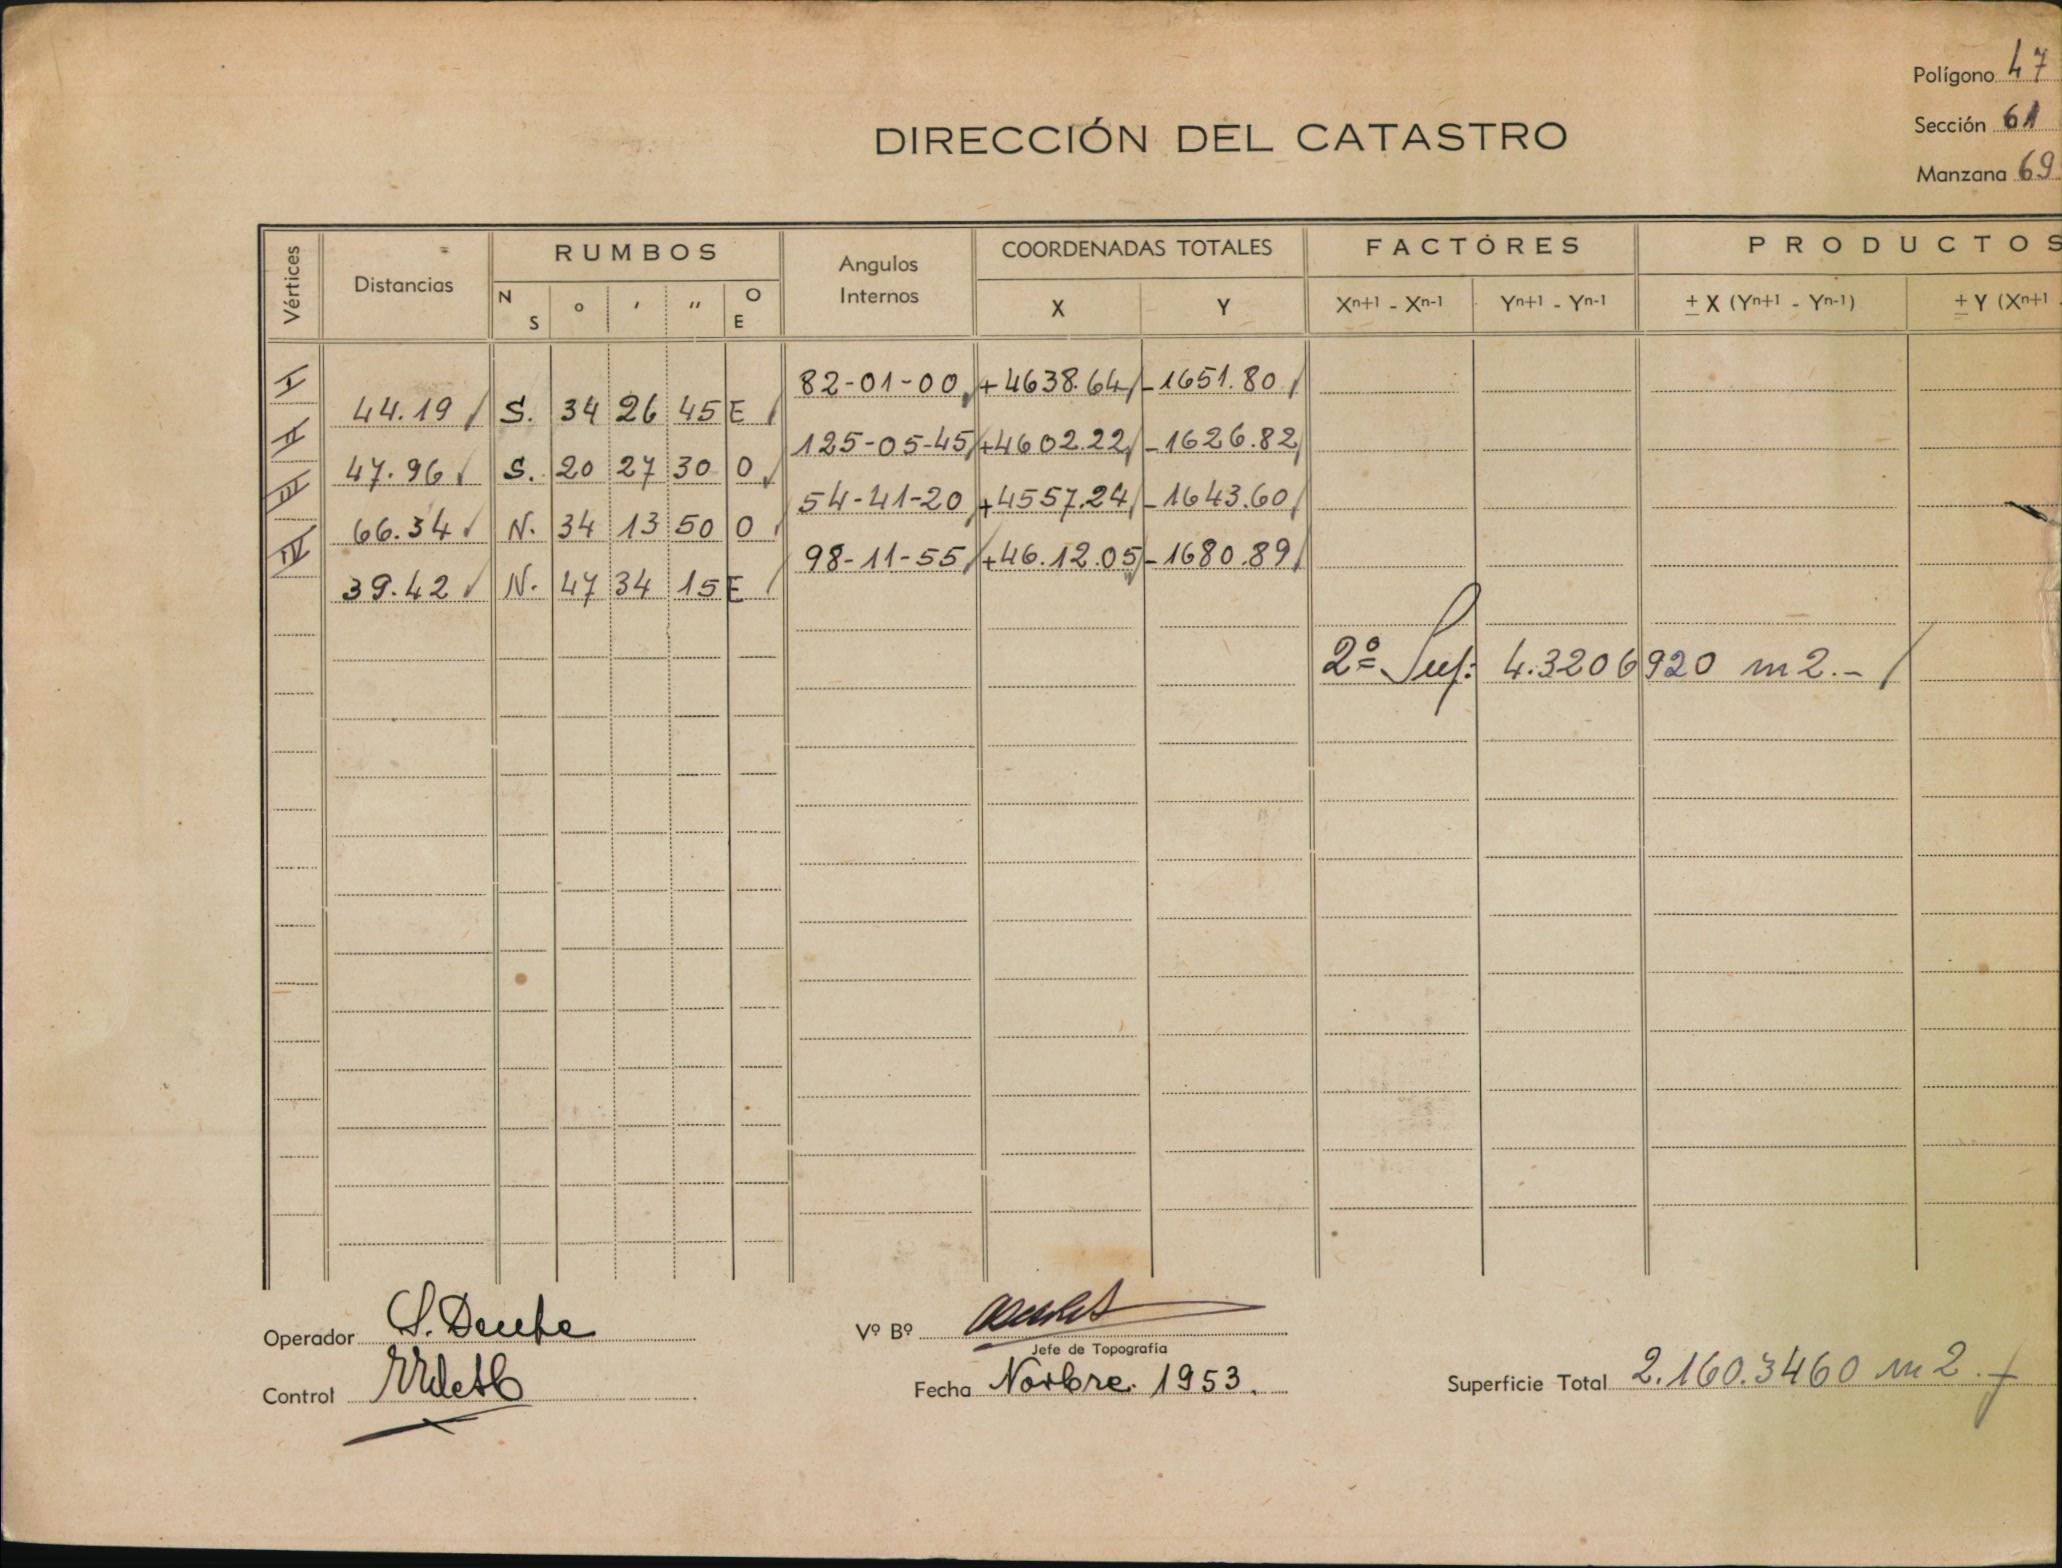 Polígono 47
DIRECCIÓN DEL CATASTRO
Sección 61
Manzana 69
Vértices Distancias RUMBOS Angulos Internos COORDENADAS TOTALES FACTÓRES PRODUCTOS
N S ° ' " O E X Y Xn+1 - Xn-1 Yn+1 - Yn-1 ± X (Yn+1 - Yn-1) ± Y (Xn+1 -
I 82-01-00 +4638.64 -1651.80
44.19 S. 34 26 45 E
II 125-05-45 +4602.22 -1626.82
47.96 S. 20 27 30 O
III 54-41-20 +4557.24 -1643.60
66.34 N. 34 13 50 O
IV 98-11-55 +46.12.05 -1680.89
39.42 N. 47 34 15 E
2º Sup: 4.3206920 m2.-
Operador
Vº Bº
Jefe de Topografía
Control
Fecha Novbre. 1953.
Superficie Total 2.160.3460 m2.